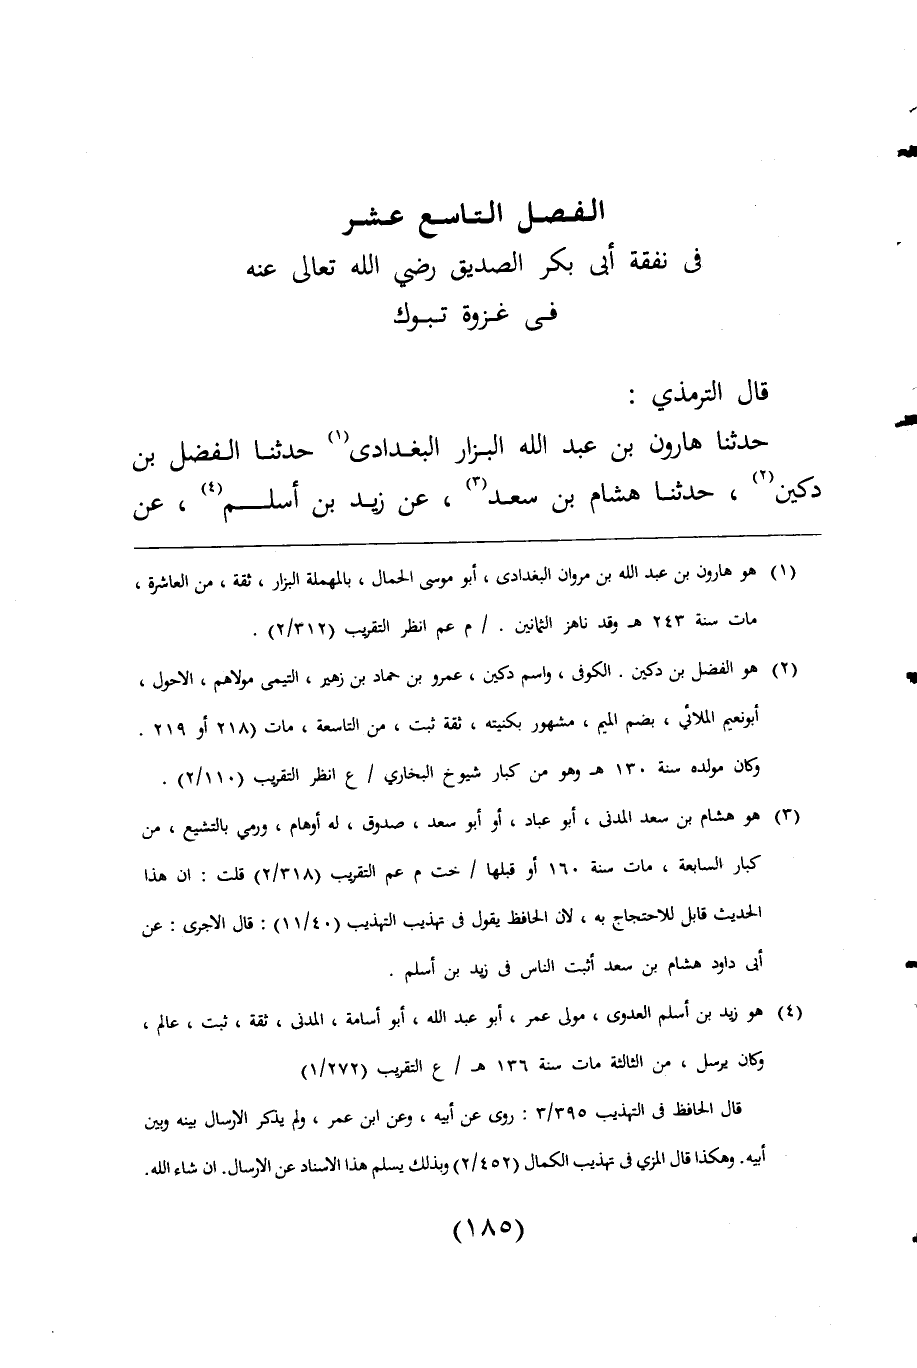 الفصل التاسع عشر
فى نفقة أبى بكر الصديق رضي الله تعالى عنه
فى غزوة تبوك
قال الترمذي :
حدثنا هارون بن عبد الله البزار البغدادى(١) حدثنا الفضل بن
دكين(٢) ، حدثنا هشام بن سعد(٣) ، عن زيد بن أسلم(٤) ، عن
(١) هو هارون بن عبد الله بن مروان البغدادى ، أبو موسى الحمال ، بالمهملة البزار ، ثقة ، من العاشرة ،
مات سنة ٢٤٣ هـ وقد ناهز الثمانين . / م عم انظر التقريب (٢/٣١٢) .
(٢) هو الفضل بن دكين . الكوفى ، واسم دكين ، عمرو بن حماد بن زهير ، التيمى مولاهم ، الاحول ،
أبونعيم الملائي ، بضم الميم ، مشهور بكنيته ، ثقة ثبت ، من التاسعة ، مات (٢١٨ أو ٢١٩ .
وكان مولده سنة ١٣٠ هـ وهو من كبار شيوخ البخاري / ع انظر التقريب (٢/١١٠) .
(٣) هو هشام بن سعد المدنى ، أبو عباد ، أو أبو سعد ، صدوق ، له أوهام ، ورمي بالتشيع ، من
كبار السابعة ، مات سنة ١٦٠ أو قبلها / خت م عم التقريب (٢/٣١٨) قلت : ان هذا
الحديث قابل للاحتجاج به ، لان الحافظ يقول فى تهذيب التهذيب (١١/٤٠) : قال الاجرى : عن
أبى داود هشام بن سعد أثبت الناس فى زيد بن أسلم .
(٤) هو زيد بن أسلم العدوى ، مولى عمر ، أبو عبد الله ، أبو أسامة ، المدنى ، ثقة ، ثبت ، عالم ،
وكان يرسل ، من الثالثة مات سنة ١٣٦ هـ / ع التقريب (١/٢٧٢)
قال الحافظ فى التهذيب ٣/٣٩٥ : روى عن أبيه ، وعن ابن عمر ، ولم يذكر الارسال بينه وبين
أبيه. وهكذا قال المزي فى تهذيب الكمال (٢/٤٥٢) وبذلك يسلم هذا الاسناد عن الارسال. ان شاء الله.
(١٨٥)